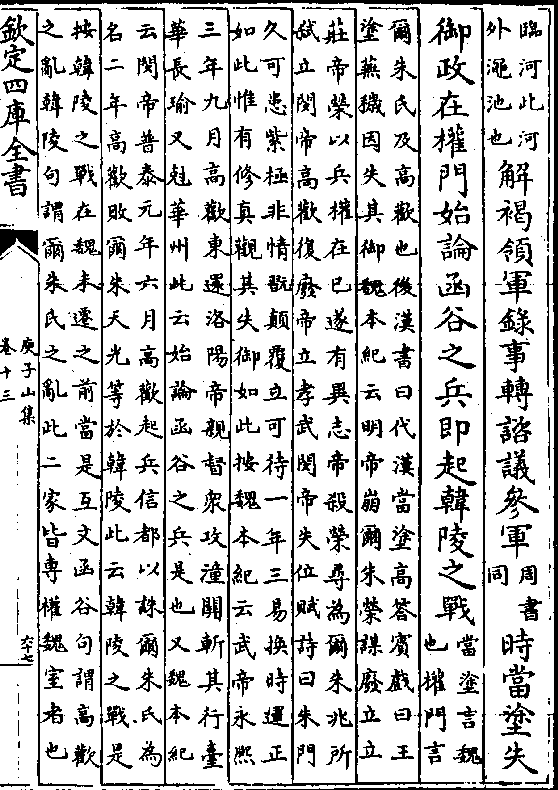 臨河此河
外澠池也
解褐領軍錄事轉諮議參軍
周書
同
時當塗失
御政在權門始論函谷之兵即起韓陵之戰
當塗言魏
也權門言
爾朱氏及高歡也後漢書曰代漢當塗高荅賓戲曰王
塗蕪穢因失其御魏本紀云明帝崩爾朱榮謀廢立立
莊帝榮以兵權在已遂有異志帝殺榮尋為爾朱兆所
弑立閔帝高歡復廢帝立孝武閔帝失位賦詩曰朱門
久可患紫極非情翫顛覆立可待一年三易換時運正
如此惟有修真觀其失御如此按魏本紀云武帝永熙
三年九月高歡東還洛陽帝親督衆攻潼關斬其行臺
華長瑜又尅華州此云始論函谷之兵是也又魏本紀
云閔帝普泰元年六月高歡起兵信都以誅爾朱氏為
名二年高歡敗爾朱天光等於韓陵此云韓陵之戰是
按韓陵之戰在魏未遷之前當是互文函谷句謂高歡
之亂韓陵句謂爾朱氏之亂此二家皆專權魏室者也
欽定四庫全書
庾子山集
卷十三
六十七